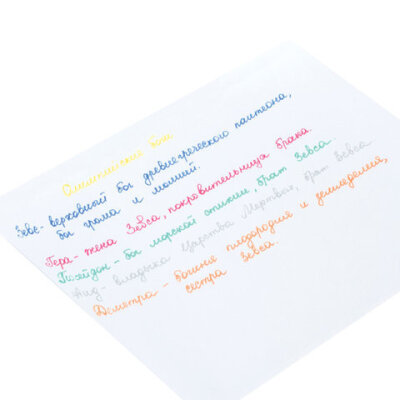 Олимпийские боги
Зевс - верховный бог древнегреческого пантеона,
бог грома и молний.
Гера - жена Зевса, покровительница брака.
Посейдон - бог морской стихии, брат Зевса
Аид - владыка Царства Мертвых, брат Зевса
Деметра - богиня плодородия и земледелия,
сестра Зевса.